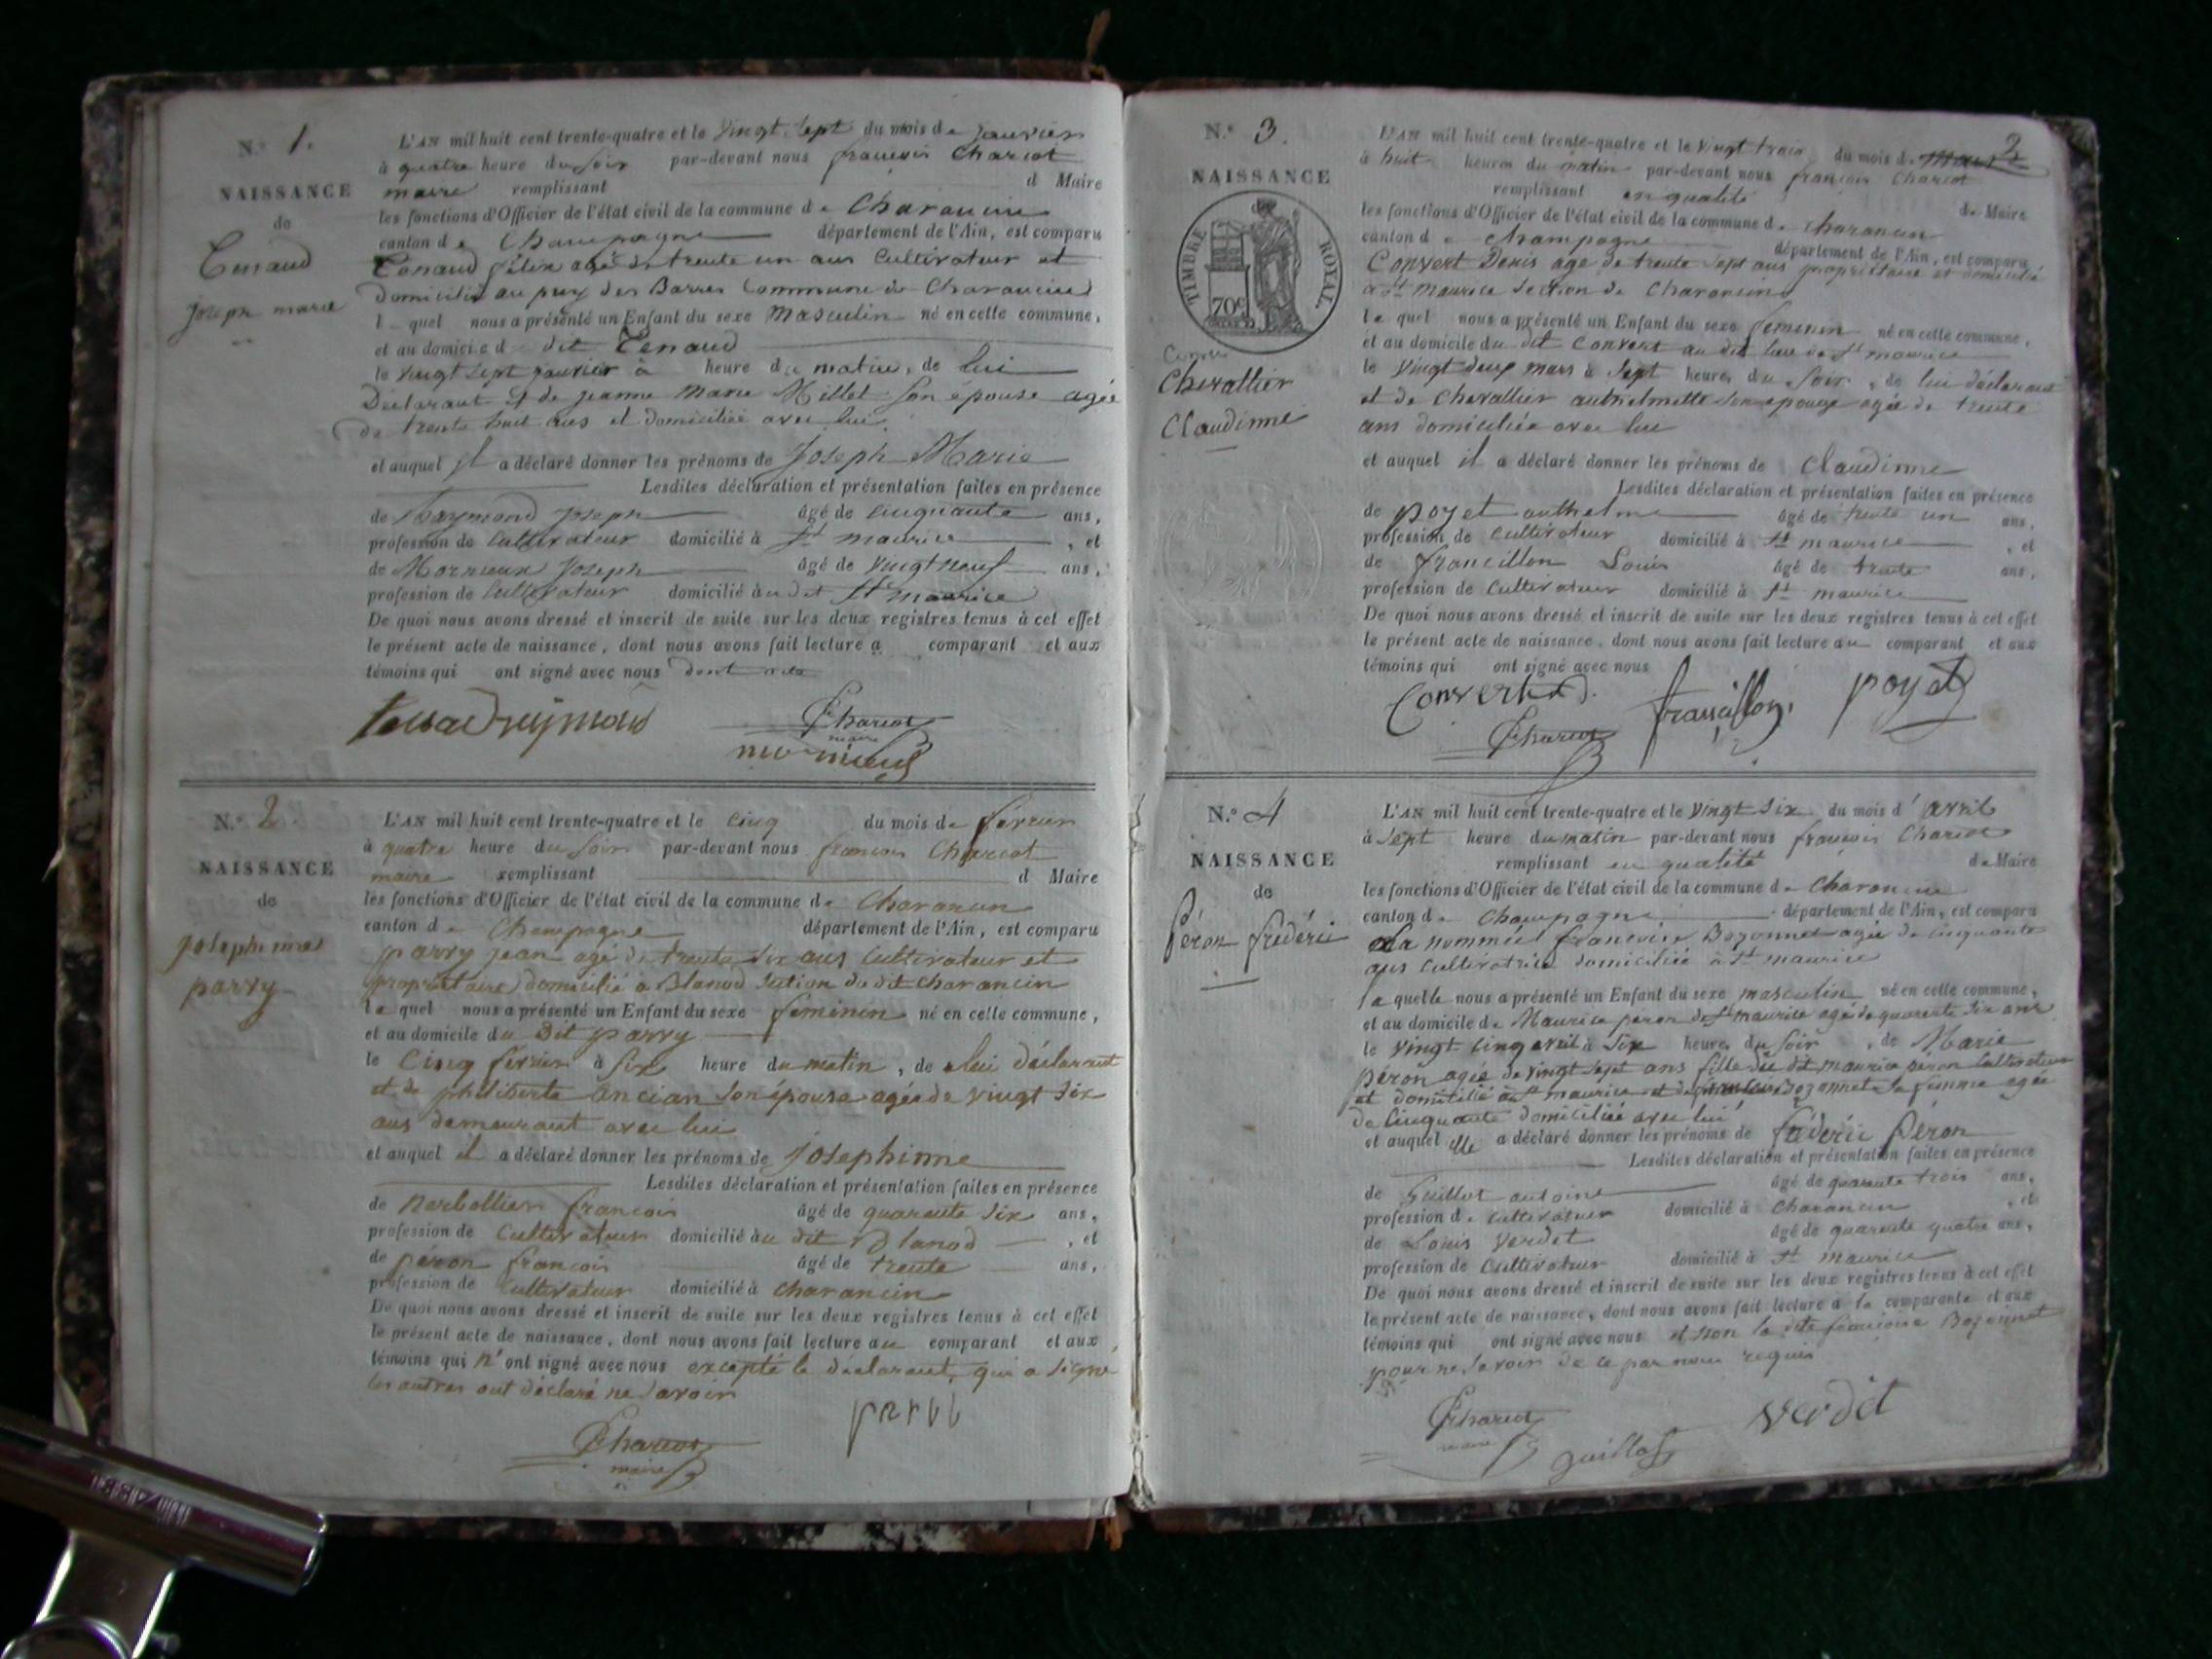 N.° 1.
NAISSANCE
de
Tenaud
joseph marie
L'AN mil huit cent trente-quatre et le vingt sept du mois de janvier
à quatre heure du soir par-devant nous françois Chariot
maire remplissant d Maire
les fonctions d'Officier de l'état civil de la commune de Charancin
canton de Champagne département de l'Ain, est comparu
Tenaud félix agé de trente un ans Cultivateur et
domicilié au puy des Barres Commune de Charancin
l quel nous a présenté un Enfant du sexe Masculin né en celle commune,
et au domicie d dit Tenaud
le vingt sept janvier à heure du matin, de lui
Declarant et de jeanne Marie Millet son épouse agée
de trente huit ans et domiciliée avec lui
et auquel il a déclaré donner les prénoms de Joseph Marie
Lesdites déclaration et présentation faites en présence
de Raymond Joseph âgé de cinquante ans,
profession de Cultivateur domicilié à St maurice, et
de Mornieux Joseph âgé de vingt neuf ans,
profession de Cultivateur domicilié au dit St maurice
De quoi nous avons dressé et inscrit de suite sur les deux registres tenus à cet effet
le présent acte de naissance, dont nous avons fait lecture a comparant et aux
témoins qui ont signé avec nous dont acte
Chariot
maire
mornieux
N.° 2.
NAISSANCE
de
josephinne
parry
L'AN mil huit cent trente-quatre et le cinq du mois de fevrier
à quatre heure du soir par-devant nous francois Chariot
maire remplissant d Maire
les fonctions d'Officier de l'état civil de la commune de Charancin
canton de Champagne département de l'Ain, est comparu
parry jean agé de trente six ans Cultivateur et
propriétaire domicilié à Blanod section du dit Charancin
le quel nous a présenté un Enfant du sexe feminin né en celle commune,
et au domicile du Dit parry
le Cinq février à six heure du matin, de lui déclarant
et de philiberte ancian son épouse agée de vingt six
ans demeurant avec lui
et auquel il a déclaré donner les prénoms de Josephinne
Lesdites déclaration et présentation faites en présence
de Nerbollier francois âgé de quarante six ans,
profession de Cultivateur domicilié au dit Blanod, et
de péron francois âgé de trente ans,
profession de Cultivateur domicilié à charancin
De quoi nous avons dressé et inscrit de suite sur les deux registres tenus à cet effet
le présent acte de naissance, dont nous avons fait lecture au comparant et aux
témoins qui n'ont signé avec nous excepté le déclarant, qui a signé
les autres ont déclaré ne savoir
Chariot
maire
2
N.° 3.
NAISSANCE
TIMBRE ROYAL
70c
Chevallier
Claudinne
L'AN mil huit cent trente-quatre et le vingt trois du mois de mars
à huit heures du matin par-devant nous françois Chariot
remplissant en qualité de Maire
les fonctions d'Officier de l'état civil de la commune de charancin
canton de champagne département de l'Ain, est comparu
Convert Denis agé de trente sept ans propriétaire et domicilié
à St maurice section de Charancin
le quel nous a présenté un Enfant du sexe feminin né en celle commune,
et au domicile du dit convert au dit lieu de St maurice
le vingt deux mars à sept heures du soir, de lui déclarant
et de Chevallier anthelmette son épouse agée de trente
ans domiciliée avec lui
et auquel il a déclaré donner les prénoms de Claudinne
Lesdites déclaration et présentation faites en présence
de poyet anthelme âgé de trente un ans,
profession de Cultivateur domicilié à St maurice, et
de francillon Louis âgé de trente ans,
profession de Cultivateur domicilié à St maurice
De quoi nous avons dressé et inscrit de suite sur les deux registres tenus à cet effet
le présent acte de naissance, dont nous avons fait lecture au comparant et aux
témoins qui ont signé avec nous
Convert D. francillon poyet
Chariot
N.° 4
NAISSANCE
de
Péron fréderic
L'AN mil huit cent trente-quatre et le vingt six du mois d'avril
à sept heure du matin par-devant nous françois Chariot
remplissant en qualité de Maire
les fonctions d'Officier de l'état civil de la commune de Charancin
canton de Champagne département de l'Ain, est comparu
La nommée francoise Bozonnet agée de cinquante
ans cultivatrice domiciliée à St maurice
la quelle nous a présenté un Enfant du sexe masculin né en celle commune,
et au domicile de Maurice péron de St maurice agé de quarante six ans
le vingt cinq avril à six heures du soir, de Marie
péron agée de vingt sept ans fille du dit maurice péron Cultivateur
et domicilié à St maurice et de francoise Bozonnet sa femme agée
de Cinquante domiciliée avec lui
et auquel elle a déclaré donner les prénoms de fréderic péron
Lesdites déclaration et présentation faites en présence
de Guillot antoine âgé de quarante trois ans,
profession de cultivateur domicilié à Charancin, et
de Louis Verdet âgé de quarante quatre ans,
profession de Cultivateur domicilié à St maurice
De quoi nous avons dressé et inscrit de suite sur les deux registres tenus à cet effet
le présent acte de naissance, dont nous avons fait lecture à la comparante et aux
témoins qui ont signé avec nous et non la dite francoise Bozonnet
pour ne savoir de ce par nous requis
Chariot verdet
maire guillot